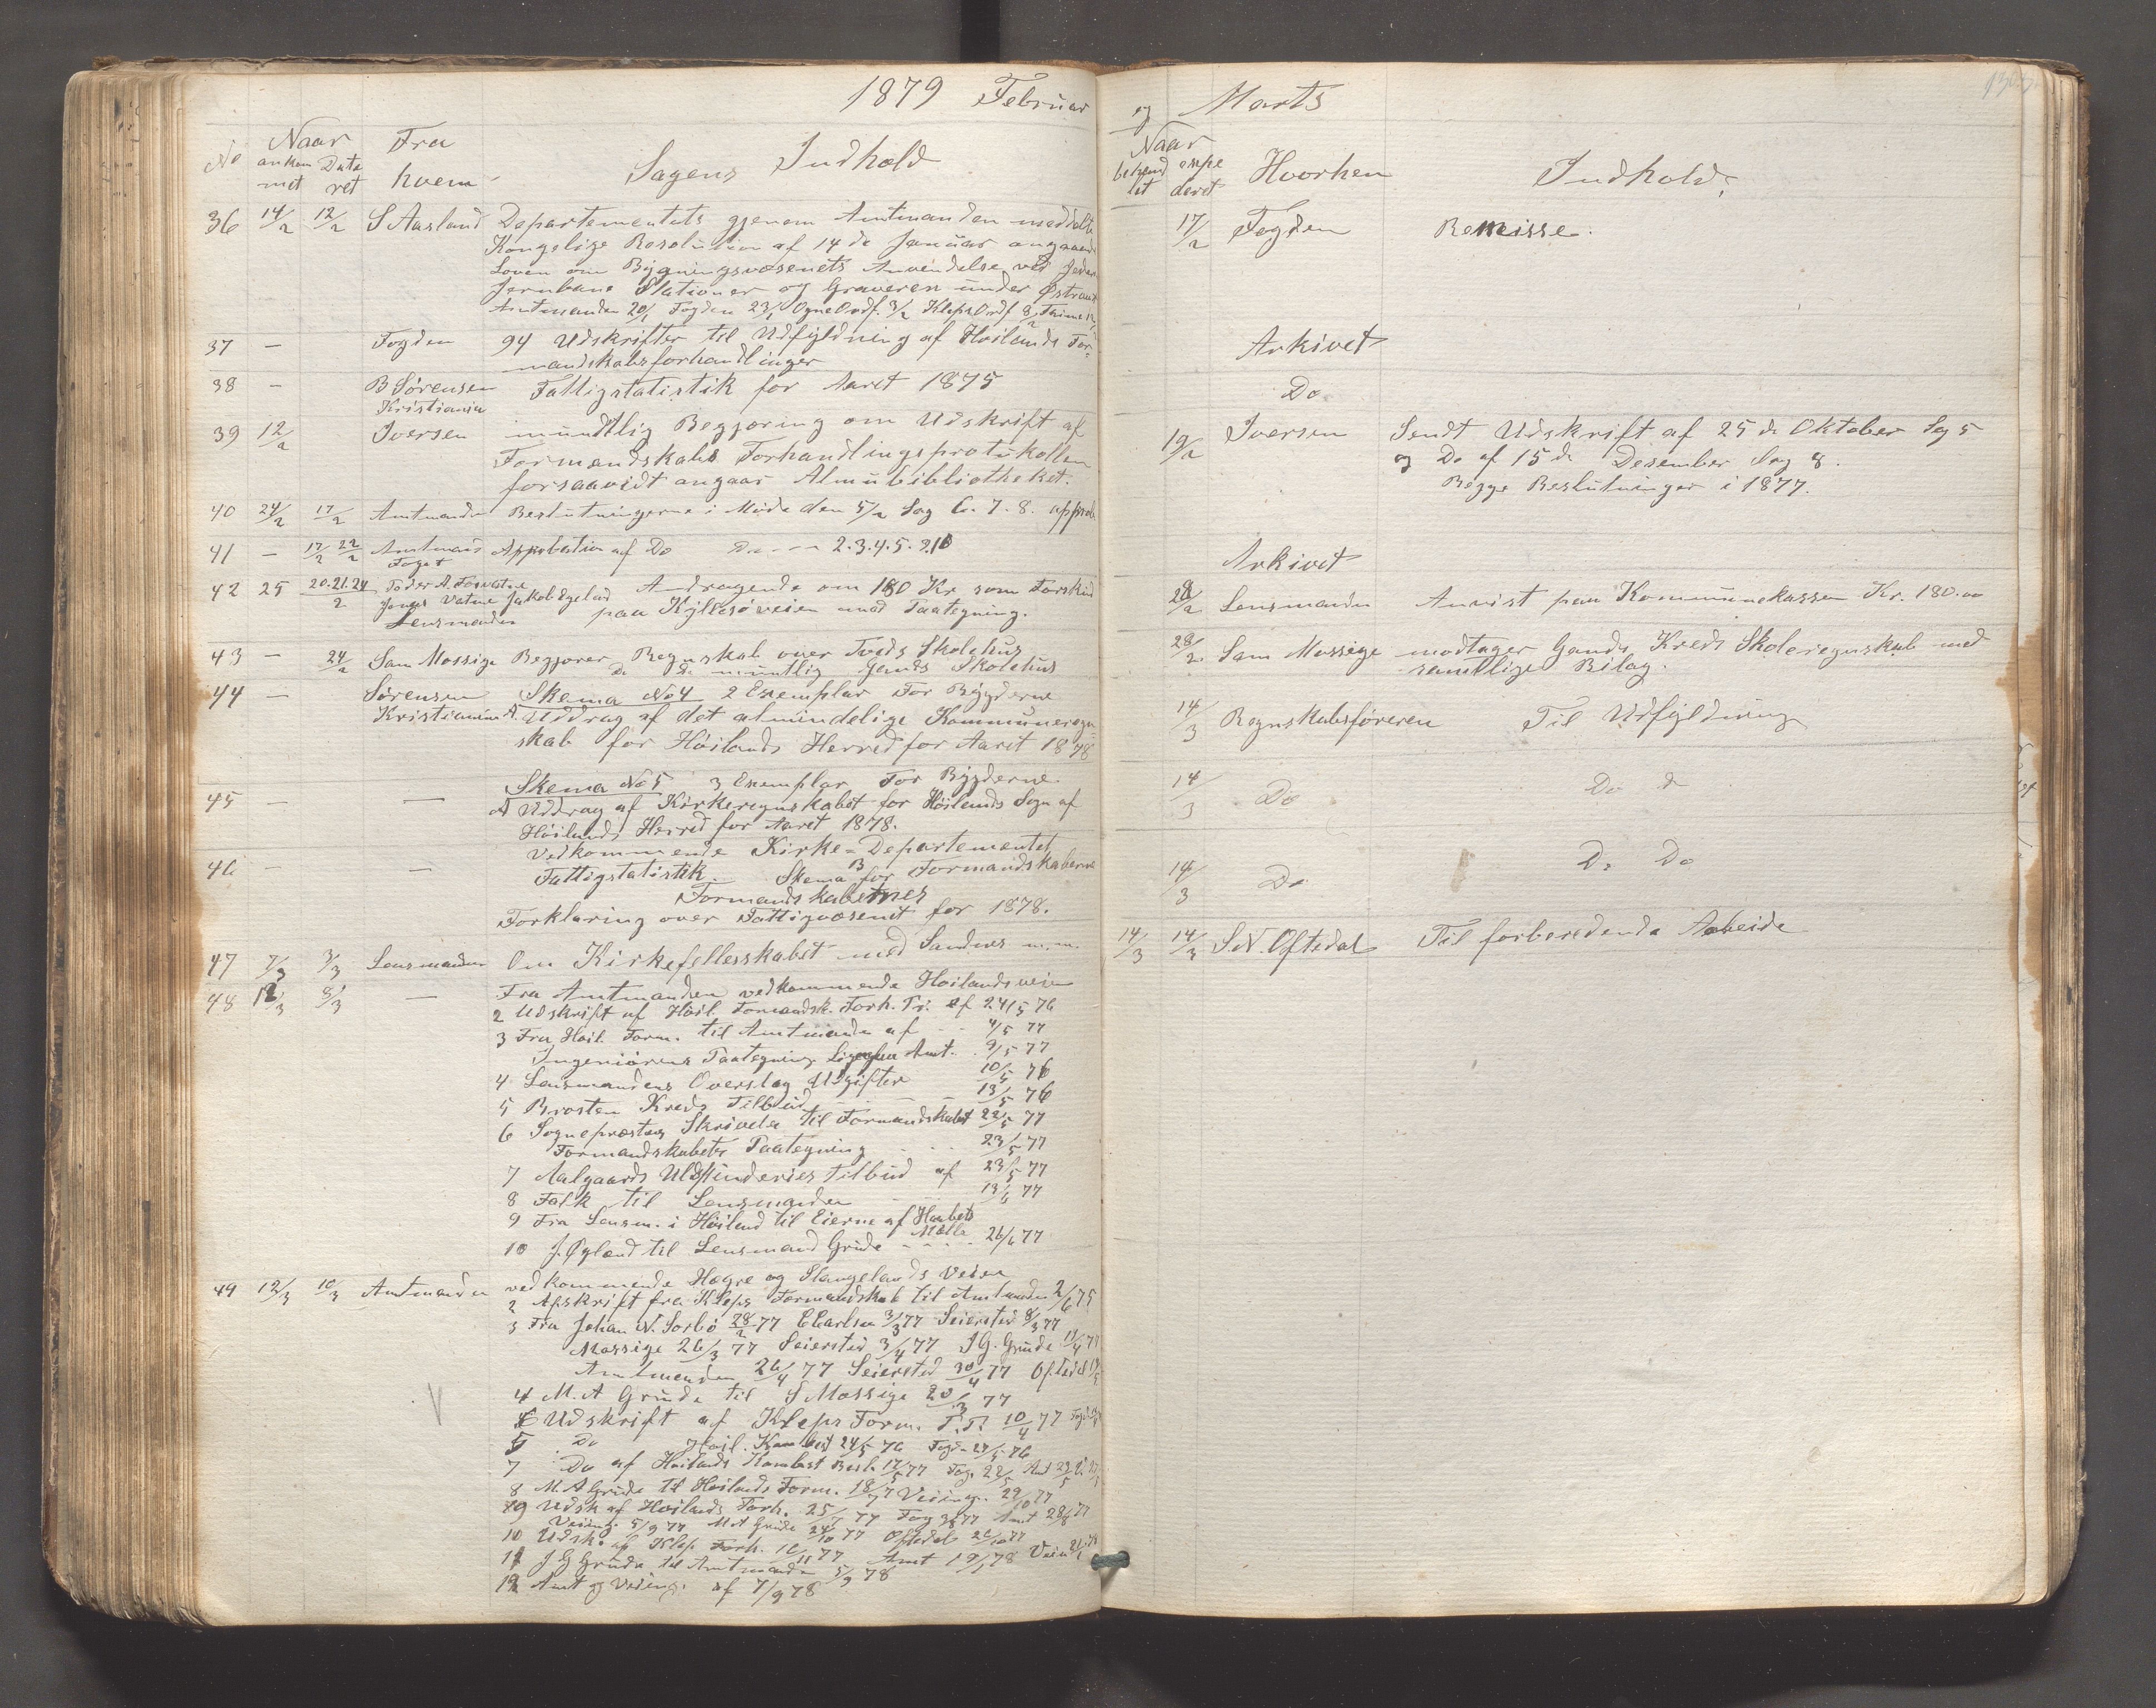 1879 Februar
No Naar Fra Sagens Indhold
ankom Data
met ret hvem
36 14/2 12/2 S Aasland Departementets gjenem Amtmanden meddelte
Kongelige Resolution af 14de Januar angaaende
Loven om Bygningsvæsenets Anvendelse ved Jæder
Jernbane Stationer og Graveren under
Amtmanden 20/1 Fogden 23/1 Ogne Ordf. 3/2 Klep Ordf 8/2
37 — Fogden 94 Udskrifter til Udfyldning af Høilands For-
mandskabsforhandlinger
38 — B Sørensen Fattigstatistik for Aaret 1875
Kristiania
39 12/2 Iversen mundtlig Begjæring om Udskrift af
Formandskabs Forhandlingsprotokollen
forsaavidt angaar Almubibliotheket.
40 24/2 17/2 Amtmanden Beslutningerne i Møde den 5/2 Sag 6. 7. 8. approb
41 — 17/2 22/2 Amtmand Approbation af Do Do — 2.3.4.5. 9.10
Foget
42 25 20.21.24/2 Andragende om 180 Kr som Forskud
Jonas Vatne Jakob Øgelend paa Kyllesøveien med Paategning.
Lensmanden
43 — 24/2 Sam Mossige Begjærer Regnskab over Tveds Skolehus
Do Do mundtlig Gands Skolehus
44 — Sørensen Skema No 4 2 Exemplar For Bygderne
Kristiania A. Uddrag af det almindelige Kommuneregn-
skab for Høilands Herred for Aaret 1878
Skema No 5 3 Exemplar For Bygderne
45 — — A Uddrag af Kirkeregnskabet for Høilands Sogn af
Høilands Herred for Aaret 1878.
Vedkommende Kirke-Departementet
46 — — Fattigstatistik. Skema B for Formandskaberne
Formandskabernes
Forklaring over Fattigvæsenet for 1878.
47 7/3 3/3 Lensmanden Om Kirkefellesskabet med Sandnes m.m.
48 12/3 8/3 — Fra Amtmanden vedkommende Høilandsveien
2 Udskrift af Høil Formandsk. Forh. Pr. af 24/5 76
3 Fra Høil. Form. til Amtmanden af - - 4/5 77
Ingeniørens Paategning Amt. . 9/5 77
4 Lensmandens Overslag Udgifter 10/5 76
5 Brosten Kreds Tilbud - - - - 13/5 76
6 Sogneprestens Skrivelse til Formandskabet 22/5 77
Formandskabets Paategning . . . 23/5 77
7 Aalgaards Uldspinderies tilbud af 23/5 77
8 Falk til Lensmanden - - - 13/6 77
9 Fra Lensm. i Høiland til Eierne af
Mølle
10 J. Øgland til Lensmand Grude - - - 26/6 77
49 12/3 10/3 Amtmanden vedkommende Hogre og Stangelands Veien
2 Afskrift fra Kleps Formandskab til Amtmanden 2/6 75
3 Fra Johan N. Sørbø 28/2 77 3/3 77 Seiersted 8/3 77
Mossige 26/3 77 Seiersted 3/4 77 J G. Grude
Amtmanden 26/4 77 Seiersted 30/4 77 Oftedal
4 M. A Grude til S Mossige 20/3 77
6 Udskrift af Kleps Form. P.P. 10/4 77
5 Do Høil. 24/5 76 Fogden 27/5 76
7 Do af Høilands Komb.st Besl. 17/5 77 Fog. 22/5
8 M. A Grude til Høilands Form. 18/7 77 Veiing. 29/10 77
9 Udsk af Høilands Forh. 25/7 77 Fog 3/8 77 Amt 28/8 77
Veiing. 5/9 77 M A Grude 24/10 77 Oftedal 26/10 77
10 Udsk. af Klep Forh. 16/11 77 Amt 19/1 78
11 J G Grude til Amtmanden 5/9 78
12 Amt og Veiing. af 7/9 78
og Marts
Naar
behand expe Hvorhen Indhold;
let deret
17/2 Fogden Remisse.
Arkivet
Do
19/2 Iversen Sendt Udskrift af 25de Oktober Sag 5
og Do af 15de Desember Sag 8.
Begge Beslutninger i 1877.
Arkivet
28/2 Lensmanden Anvist paa Kommunekassen Kr. 180.00
28/2 Sam Mossige modtager Gands Kreds Skoleregnskab med
samtlige Bilag.
14/3 Regnskabsføreren Til Udfyldning
14/3 Do Do do
14/3 Do Do Do
14/3 14/3 S.N. Oftedal Til forberedende Arbeide